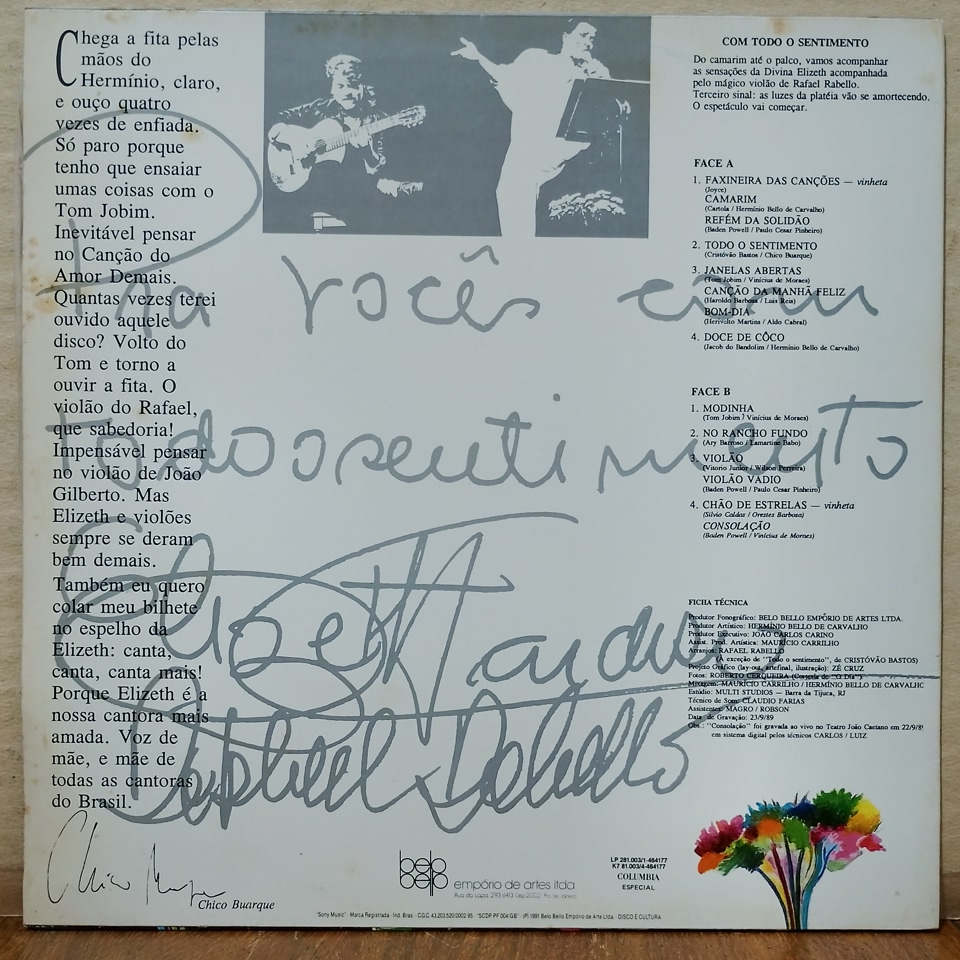 Chega a fita pelas
mãos do
Hermínio, claro,
e ouço quatro
vezes de enfiada.
Só paro porque
tenho que ensaiar
umas coisas com o
Tom Jobim.
Inevitável pensar
no Canção do
Amor Demais.
Quantas vezes terei
ouvido aquele
disco? Volto do
Tom e torno a
ouvir a fita. O
violão do Rafael,
que sabedoria!
Impensável pensar
no violão de João
Gilberto. Mas
Elizeth e violões
sempre se deram
bem demais.
Também eu quero
colar meu bilhete
no espelho da
Elizeth: canta,
canta, canta mais!
Porque Elizeth é a
nossa cantora mais
amada. Voz de
mãe, e mãe de
todas as cantoras
do Brasil.
Chico Buarque
Pra vocês com
todo o sentimento
Elizeth Cardoso
Raphael Rabello
COM TODO O SENTIMENTO
Do camarim até o palco, vamos acompanhar
as sensações da Divina Elizeth acompanhada
pelo mágico violão de Rafael Rabello.
Terceiro sinal: as luzes da platéia vão se amortecendo.
O espetáculo vai começar.
FACE A
1. FAXINEIRA DAS CANÇÕES — vinheta
(Joyce)
CAMARIM
(Cartola / Hermínio Bello de Carvalho)
REFÉM DA SOLIDÃO
(Baden Powell / Paulo Cesar Pinheiro)
2. TODO O SENTIMENTO
(Cristóvão Bastos / Chico Buarque)
3. JANELAS ABERTAS
(Tom Jobim / Vinícius de Moraes)
CANÇÃO DA MANHÃ FELIZ
(Haroldo Barbosa / Luis Reis)
BOM-DIA
(Herivelto Martins / Aldo Cabral)
4. DOCE DE CÔCO
(Jacob do Bandolim / Hermínio Bello de Carvalho)
FACE B
1. MODINHA
(Tom Jobim / Vinícius de Moraes)
2. NO RANCHO FUNDO
(Ary Barroso / Lamartine Babo)
3. VIOLÃO
(Vitorio Junior / Wilson Ferreira)
VIOLÃO VADIO
(Baden Powell / Paulo Cesar Pinheiro)
4. CHÃO DE ESTRELAS — vinheta
(Silvio Caldas / Orestes Barbosa)
CONSOLAÇÃO
(Baden Powell / Vinícius de Moraes)
FICHA TÉCNICA
Produtor Fonográfico: BELO BELLO EMPÓRIO DE ARTES LTDA.
Produtor Artístico: HERMÍNIO BELLO DE CARVALHO
Produtor Executivo: JOÃO CARLOS CARINO
Assist. Prod. Artística: MAURÍCIO CARRILHO
Arranjos: RAFAEL RABELLO
(À exceção de "Todo o sentimento", de CRISTÓVÃO BASTOS)
Projeto Gráfico (lay-out, artefinal, ilustração): ZÉ CRUZ
Fotos: ROBERTO CERQUEIRA (Cortesia de "O Dia")
Mixagem: MAURÍCIO CARRILHO / HERMÍNIO BELLO DE CARVALHO
Estúdio: MULTI STUDIOS — Barra da Tijuca, RJ
Técnico de Som: CLAUDIO FARIAS
Assistentes: MAGRO / ROBSON
Data de Gravação: 23/9/89
Obs.: "Consolação" foi gravada ao vivo no Teatro João Caetano em 22/9/89
em sistema digital pelos técnicos CARLOS / LUIZ
belo bello empório de artes ltda.
LP 281.003/1-464177
K7 81.003/4-464177
COLUMBIA
ESPECIAL
"Sony Music" - Marca Registrada - Ind. Bras. - C.G.C. 43.203.520/0002-95 - "SCDP PF 004/GB" - (P) 1991 Belo Bello Empório de Arte Ltda - DISCO É CULTURA